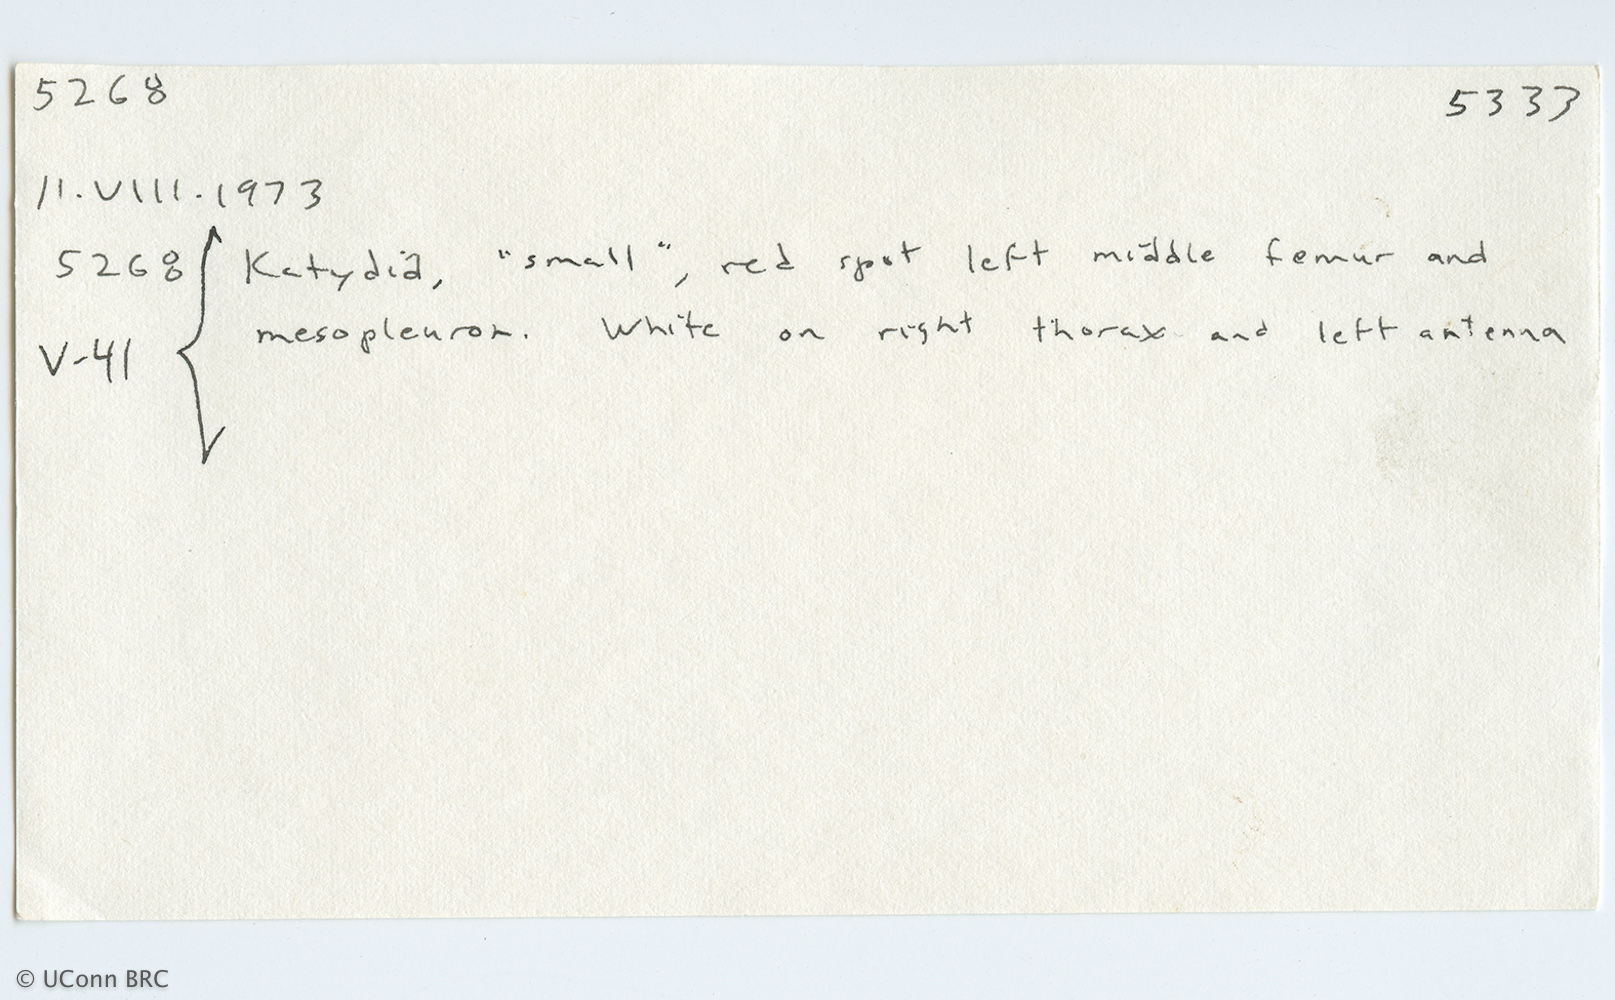 5268 5333
11.VIII.1973
5268 Katydid, "small", red spot left middle femur and
V-41 mesopleuron. White on right thorax and left antenna
© UConn BRC